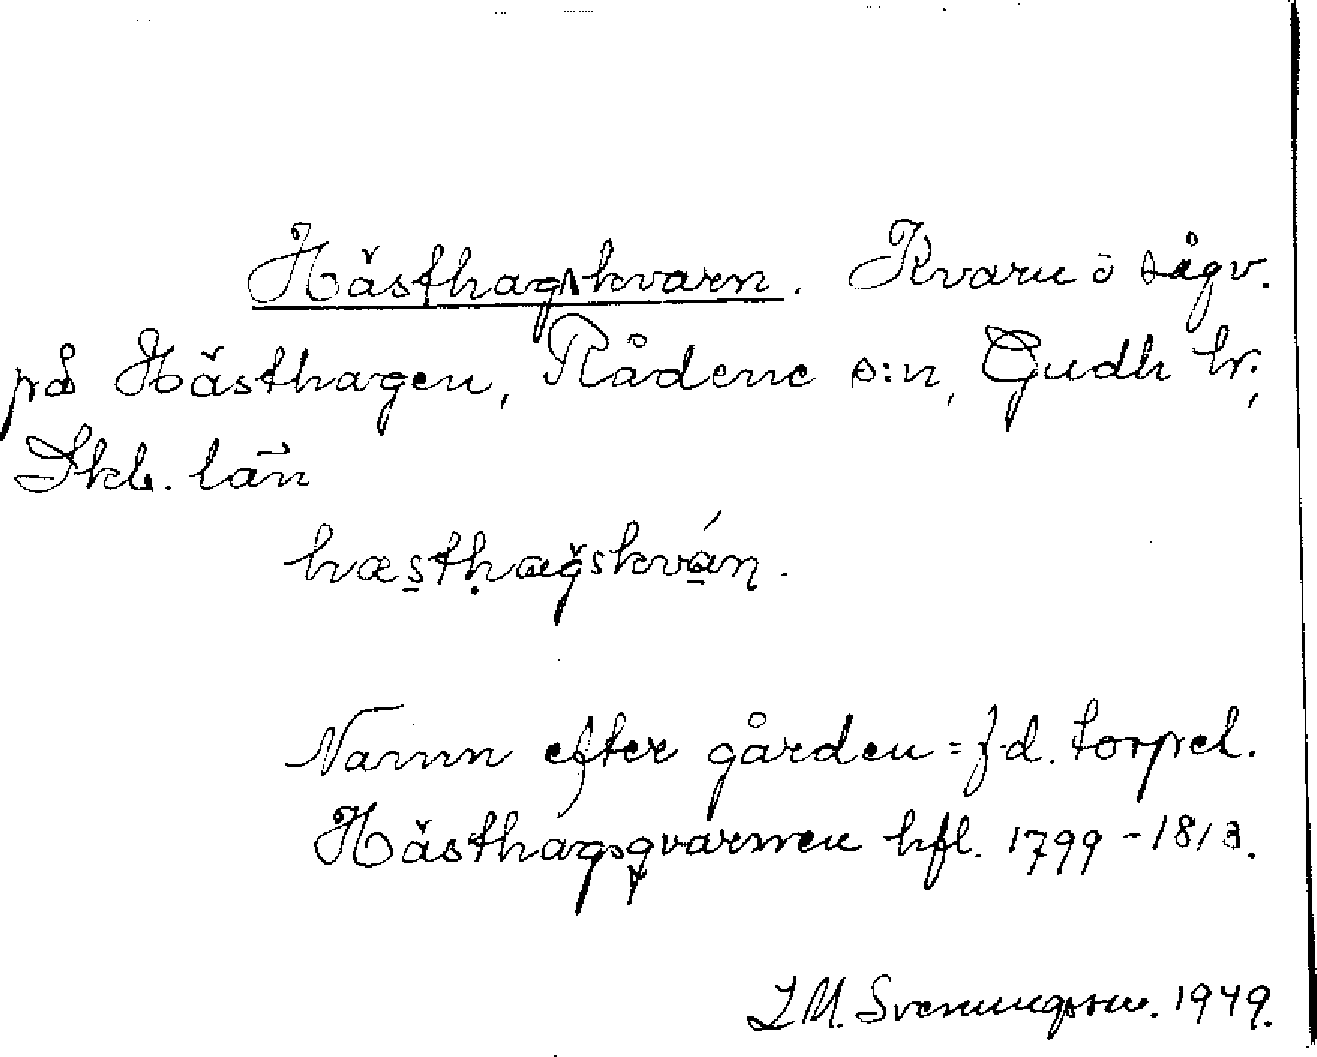 Hästhagskvarn. Kvarn o sågv.
på Hästhagen, Rådene s:n, Gudh hr,
Skb. län
hæsthagskván.
Namn efter gården = f.d. torpel.
Hästhagsqvarnen hfl. 1799-1813.
I M. Svenungsson. 1949.